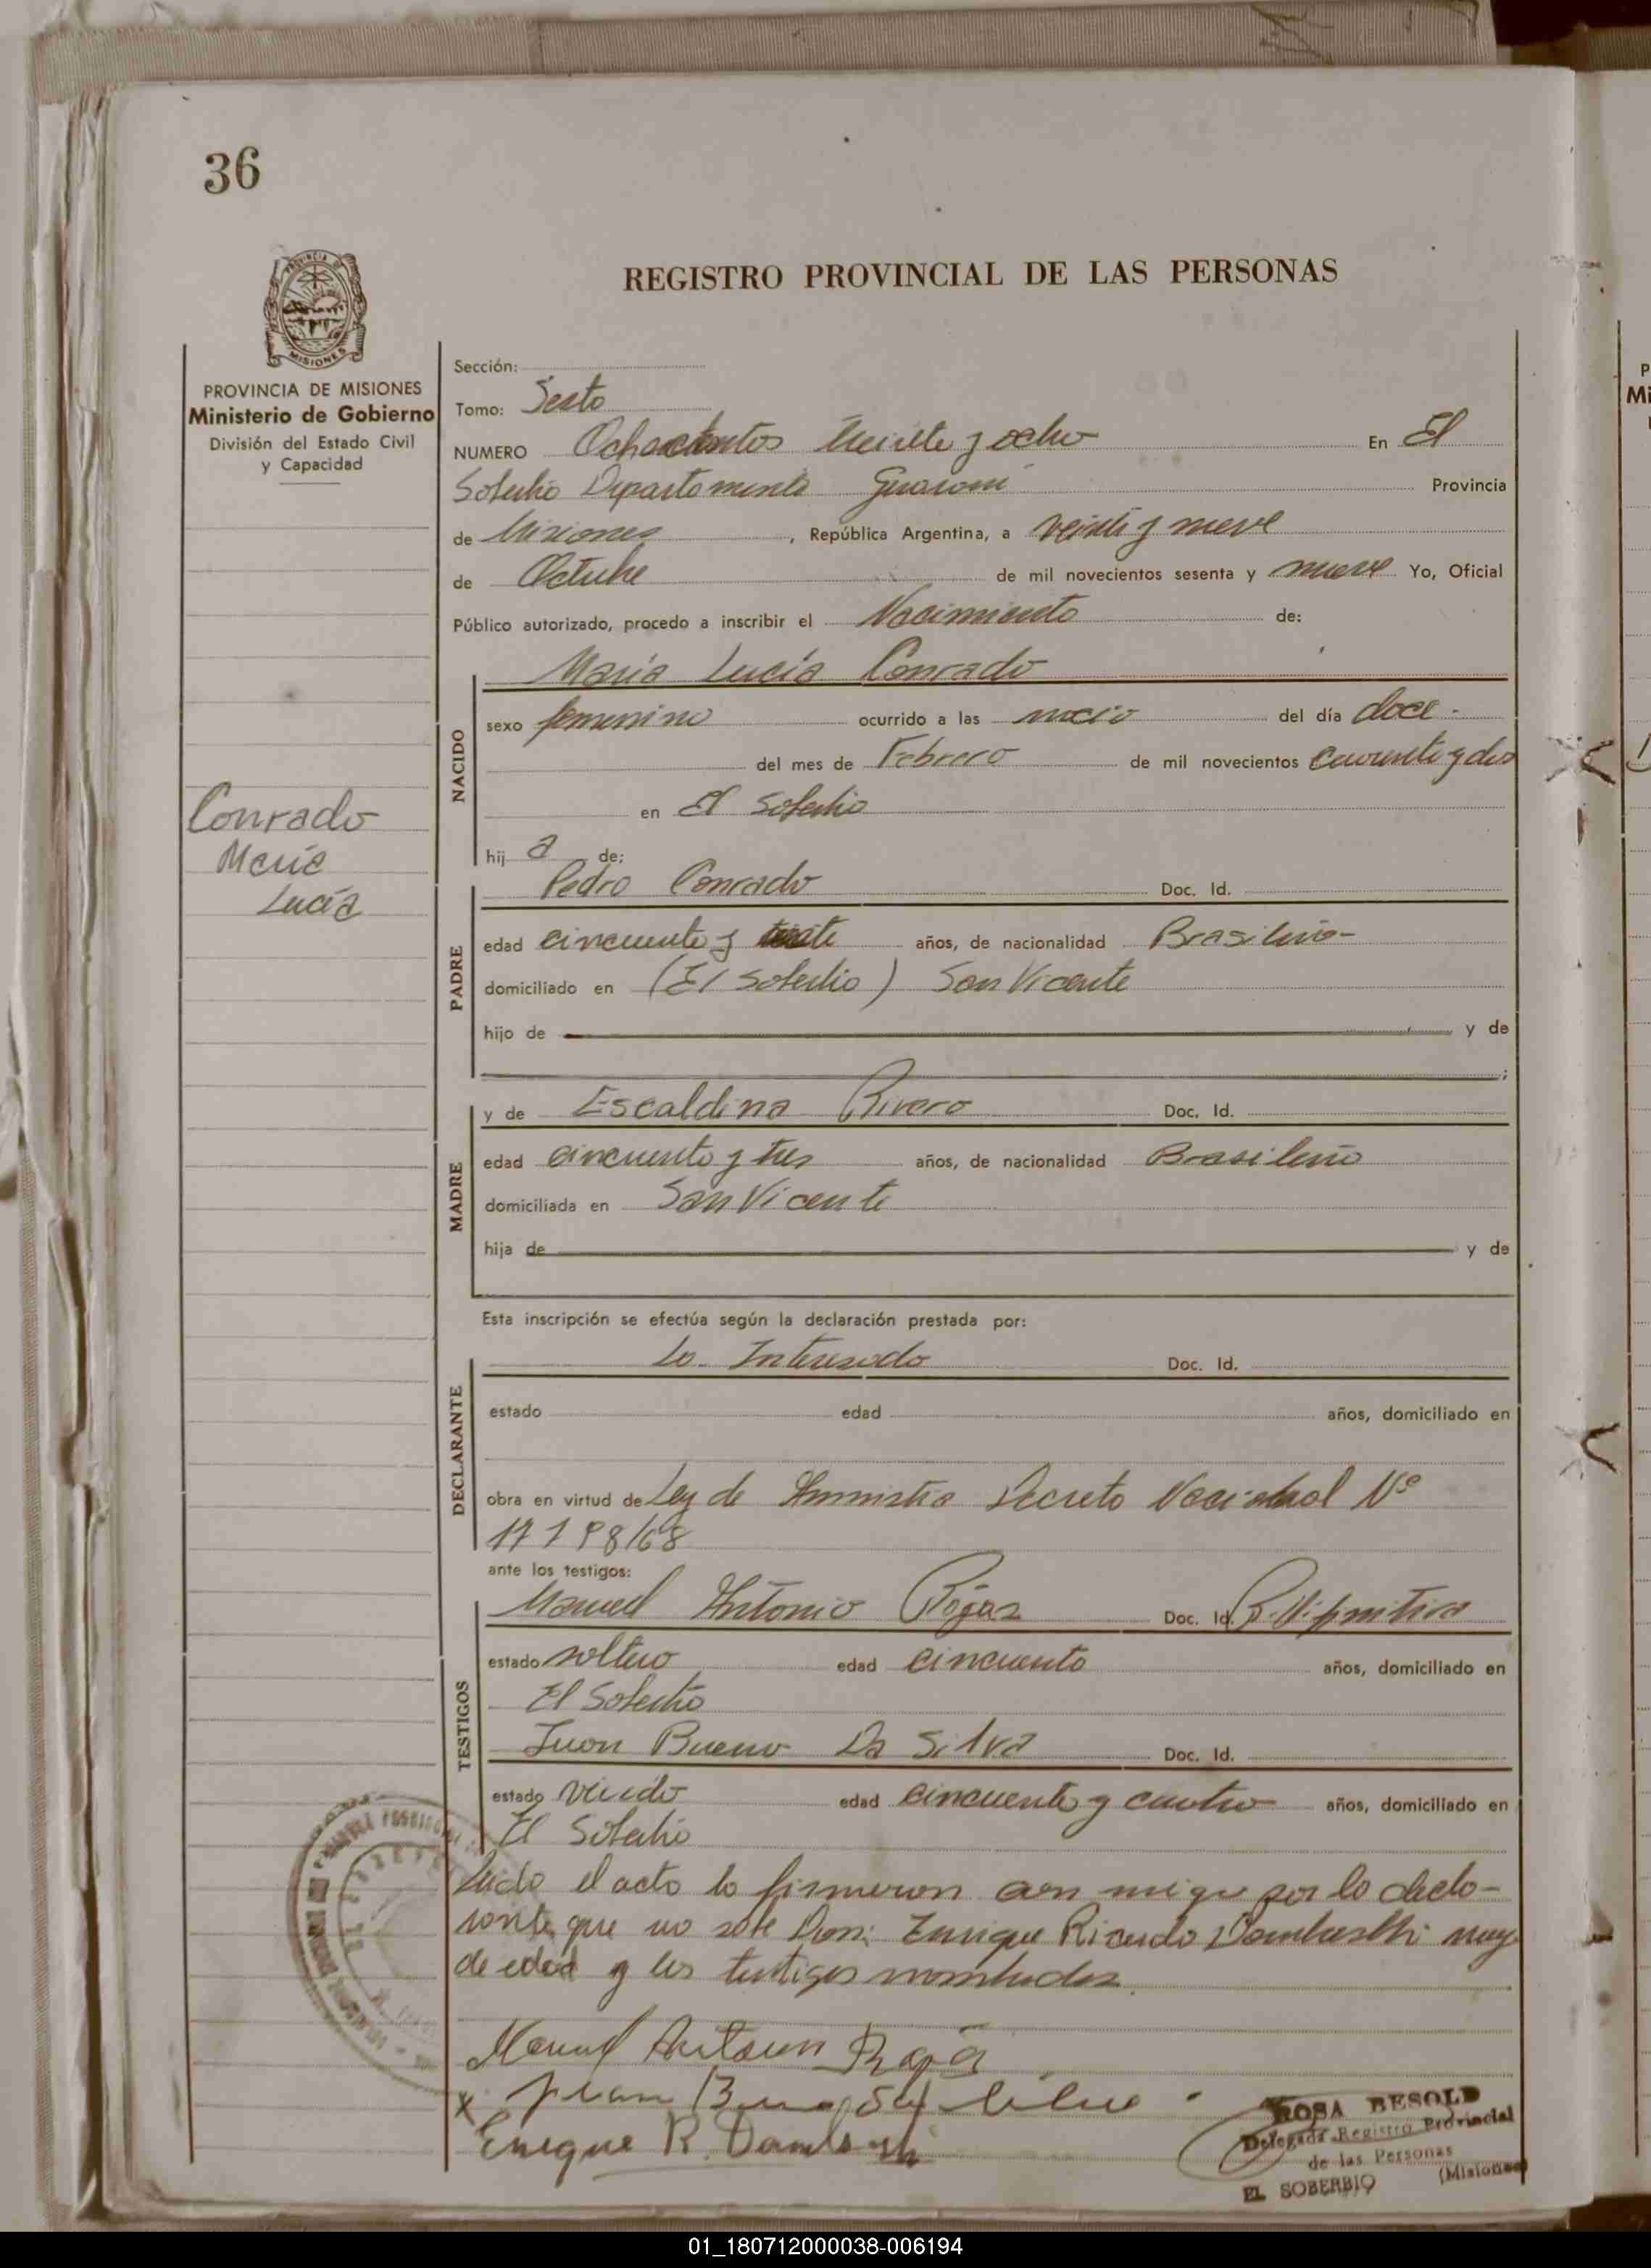 36
REGISTRO PROVINCIAL DE LAS PERSONAS
PROVINCIA DE MISIONES
MISIONES
PROVINCIA DE MISIONES
Ministerio de Gobierno
División del Estado Civil
y Capacidad
Conrado
María
Lucía
Sección:
Tomo: Sexto
NUMERO Ochocientos veinte y ocho En El
Soberbio Departamento Guaraní Provincia
de Misiones, República Argentina, a veinti y nueve
de Octubre de mil novecientos sesenta y nueve Yo, Oficial
Público autorizado, procedo a inscribir el Nacimiento de:
María Lucía Conrado
NACIDO
sexo femenino ocurrido a las del día doce.
del mes de Febrero de mil novecientos cuarenta y dos
en El Soberbio
hij a de:
PADRE
Pedro Conrado Doc. Id.
edad cincuenta y años, de nacionalidad Brasileño-
domiciliado en (El Soberbio) San Vicente
hijo de y de
;
MADRE
y de Escaldina Rivero Doc. Id.
edad cincuenta y tres años, de nacionalidad Brasileña
domiciliada en San Vicente
hija de y de
Esta inscripción se efectúa según la declaración prestada por:
DECLARANTE
La Interesada Doc. Id.
estado edad años, domiciliado en
obra en virtud de Ley de Amnistia Decreto Nacional Nº
17198/68
ante los testigos:
TESTIGOS
Manuel Antonio Rojas Doc. Id.
estado soltero edad cincuenta años, domiciliado en
El Soberbio
Juan Bueno Da Silva Doc. Id.
estado viudo edad cincuenta y cuatro años, domiciliado en
El Soberbio
Leido el acta la firmaron con migo por la decla-
rante que no sabe Don: Enrique Ricardo may
de edad y los testigos nombrados.
Manuel Antonio Rojas
x Juan
Enrique R.
ROSA BESOLD
Delegada Registro Provincial
de las Personas
EL SOBERBIO (Misiones)
01_180712000038-006194